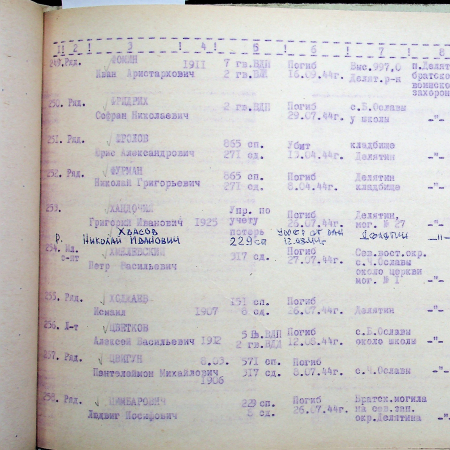 1 2 3 4 5 6 7 8
Ряд. ФОКИН 1911 7 гв.ВДП Погиб Выс.997,0 п.Делят
Иван Аристархович 2 гв. 16.09.44г. Делят.р-н братско
воинско
захорон
250. Ряд. ФРИДРИХ 2 гв.ВДП Погиб с.Б.Ославы
Софрон Николаевич 29.07.44г. у школы -"-
251. Ряд. ФРОЛОВ 865 сп. Убит кладбище
Александрович 271 сд. 19.04.44г. Делятин -"-
252. Ряд. ФУРМАН 865 сп. Погиб Делятин
Николай Григорьевич 271 сд. 8.04.44г. кладбище -"-
253. Упр. по Погиб Делятин,
Григорий Иванович 1925 учету 26.07.44г. мог. № 27 -"-
потерь
Р. ХВАСОВ
НИКОЛАЙ ИВАНОВИЧ 229 сп УМЕР ОТ РАН ДЕЛЯТИН -"-
254. 317 сд. Погиб Сев.вост.окр.
Петр Васильевич 27.07.44г. с.Ч.Ославы
около церкви
мог. № 1 -"-
255. Ряд. ХОДЖАЕВ 151 сп. Погиб
Исмаил 1907 8 сд. 26.07.44г. Делятин -"-
256. Л-т ЦВЕТКОВ 5 гв.ВДП Погиб с.Б.Ославы
Алексей Васильевич 1912 2 гв.ВДП 12.08.44г. около школы -"-
257. Ряд. ЦВИГУН 8.03. 571 сп. Погиб
Пантелеймон Михайлович 317 сд. 8.07.44г. с.Ч.Ославы -"-
1906
258. Ряд. ЦИМБАРОВИЧ 229 сп. Погиб Братск.могила
Людвиг Иосифович 8 сд. 26.07.44г. на сев.зап.
окр.Делятина -"-